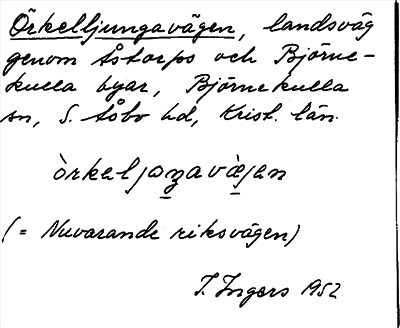 Örkelljungavägen, landsväg
genom Åstorps och Björne-
kulla byar, Björnekulla
sn, S. Åsbo hd, Krist. län.
òrkeljaŋavæ̀jen
(= Nuvarande riksvägen)
I. Ingers 1952